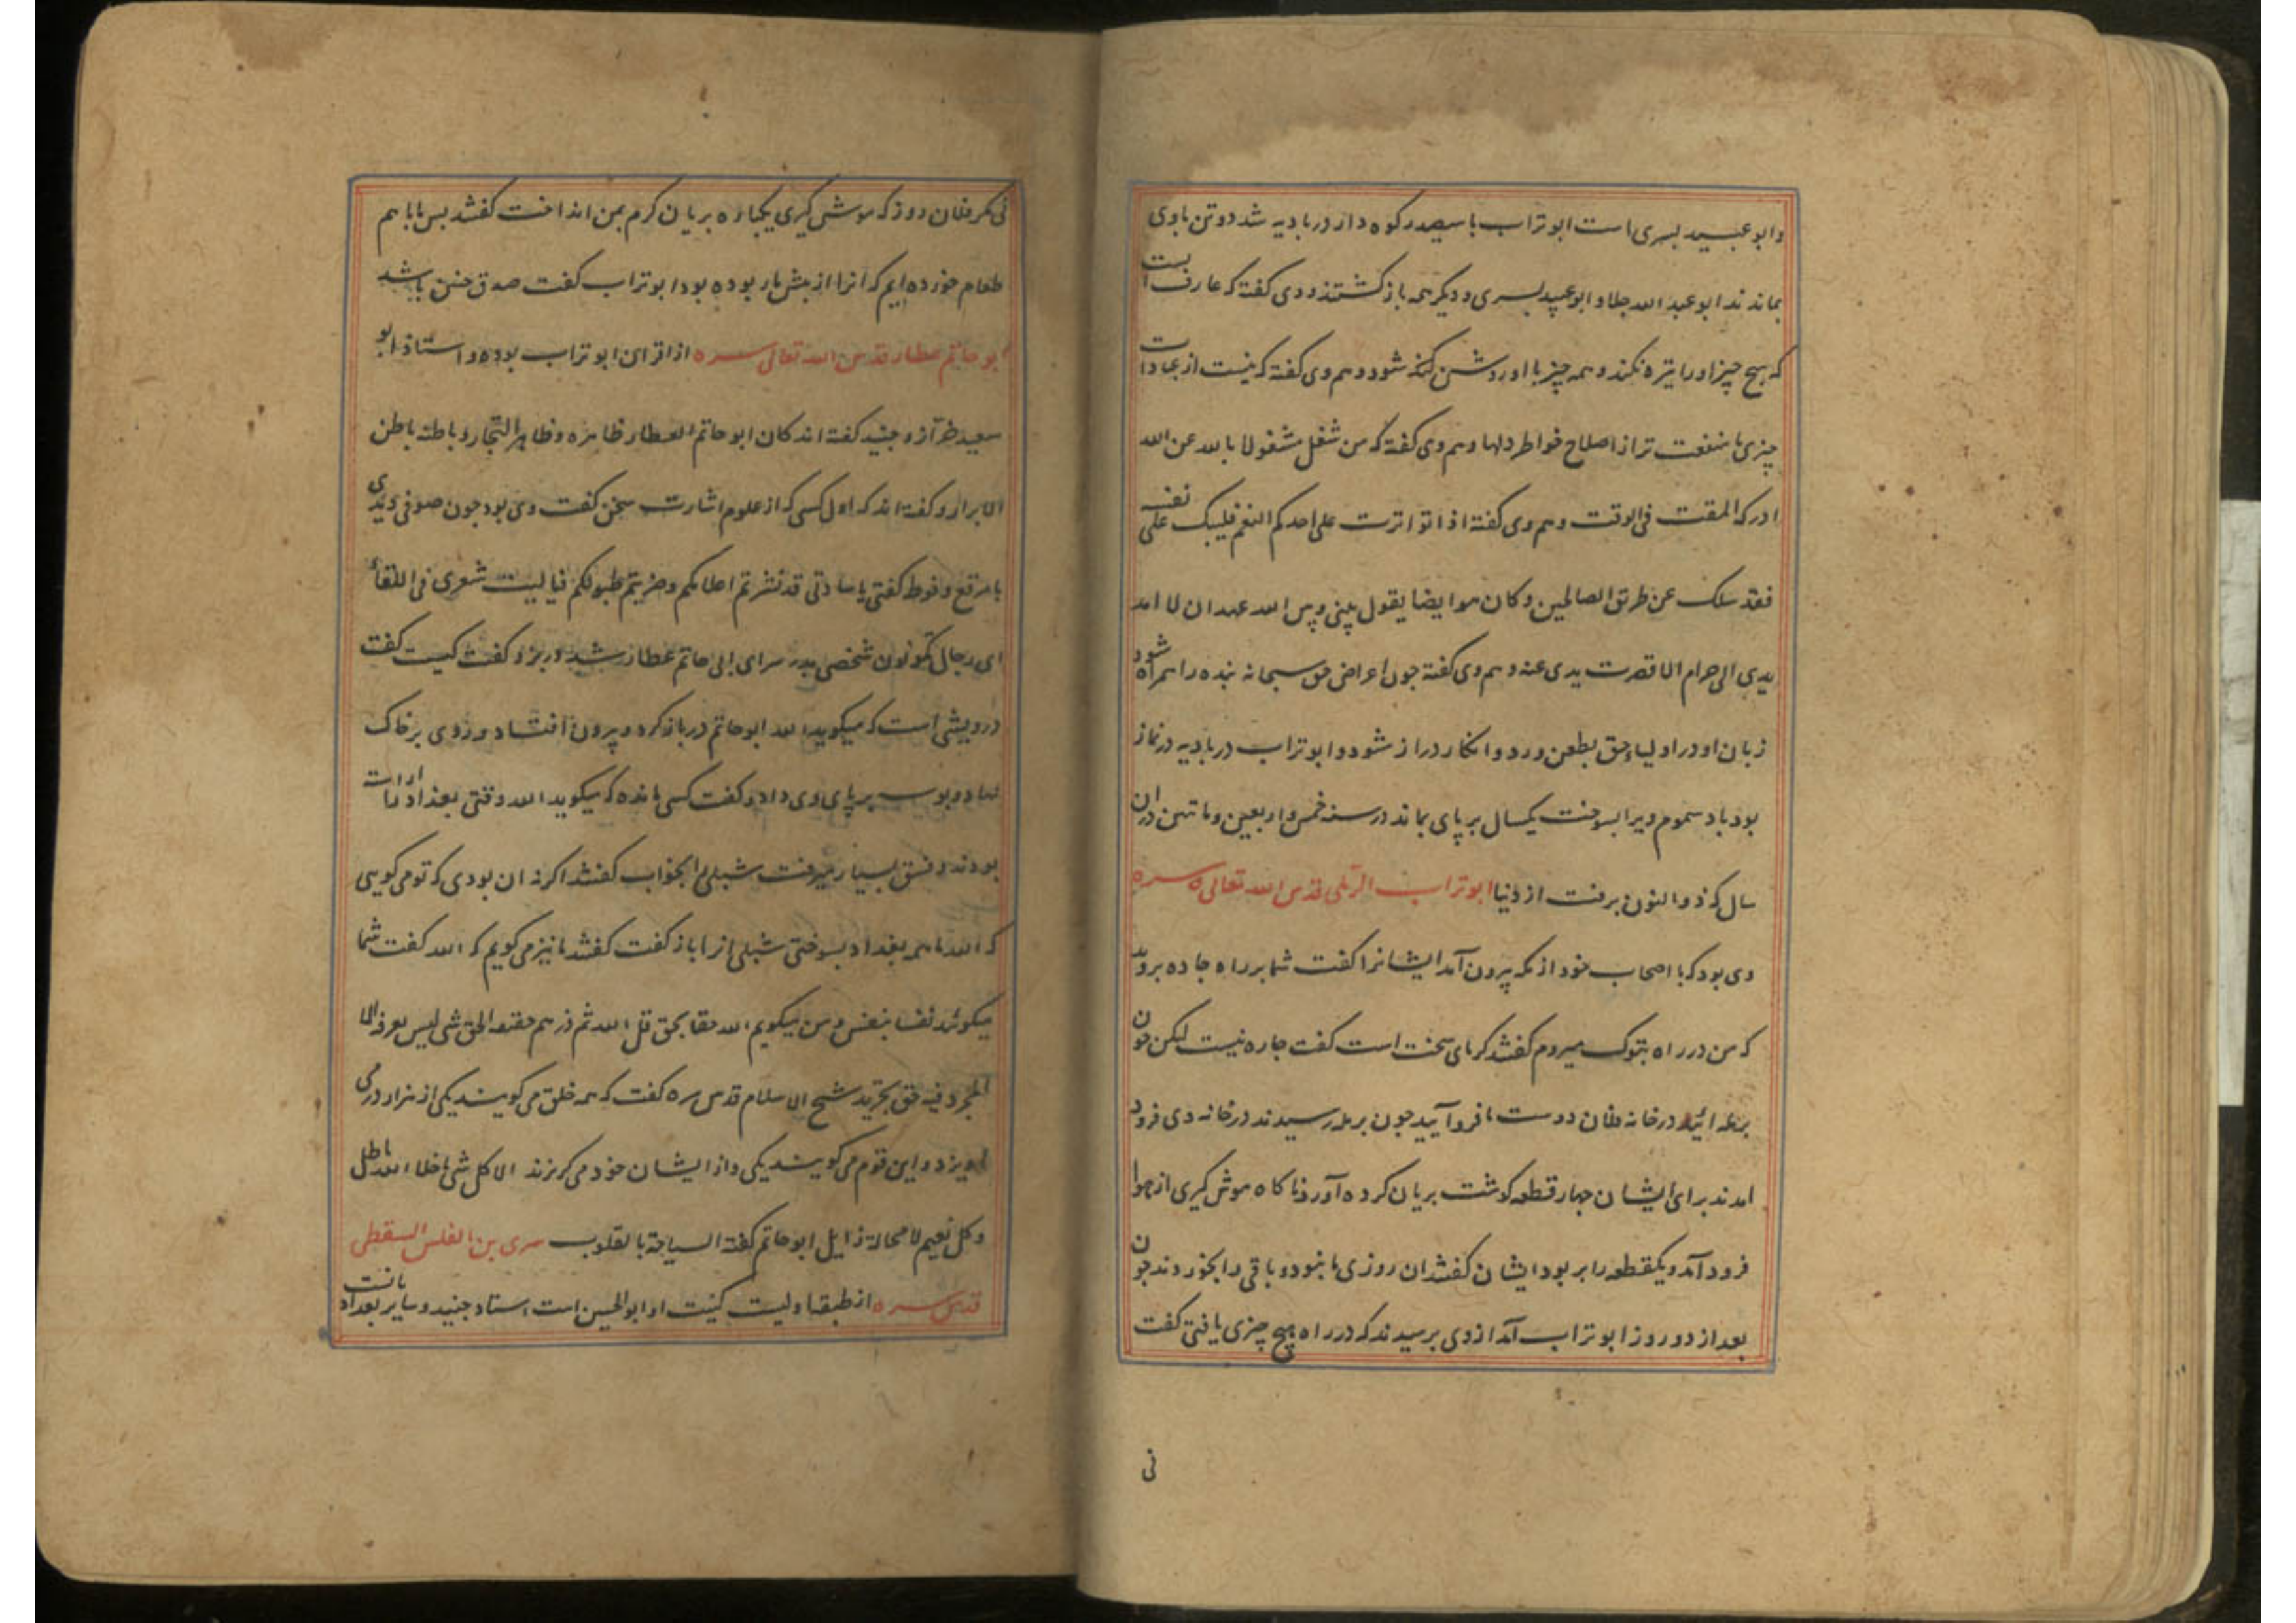 وابو عبید بسری است ابو تراب با سیصد رکوه دار در بادیه شد دو تن با وی
بماندند ابو عبد الله جلا و ابو عبید بسری و دیگر همه باز کشتند و وی کفته که عارف انست
که هیچ چیز او را تیره نکند و همه چیز باو روشن کند شود و هم وی کفته که نیست از عبادات
چیزی با منفعت تر از اصلاح خواطر دلها و هم وی کفته که من شغل مشغولا بالله عن الله
ادرکه المقت فی الوقت و هم وی کفته اذا تواترت علی احدکم النعم فلیبک علی نفسه
فقد سلک عن طریق الصالحین و کان هو ایضا یقول بینی و بین الله عهد ان لا امد
یدی الی حرام الا قصرت یدی عنه و هم وی کفته جون اعراض حق سبحانه بنده را همراه شود
زبان او در اولیاء حق بطعن و رد و انکار دراز شود و ابو تراب در بادیه در نماز
بود باد سموم ویرا بسوخت یکسال بر پای بماند در سنه خمس و اربعین و ماتین در ان
سال که ذو النون برفت از دنیا ابو تراب الرملی قدس الله تعالی سره
وی بود که با اصحاب خود از مکه بیرون آمد ایشانرا کفت شما بر راه جاده بروید
که من در راه تبوک میروم کفتند کرمای سخت است کفت جاره نیست لیکن جون
برمله ائید در خانه فلان دوست ما فرو آیید جون برمله رسیدند در خانه وی فرود
امدند برای ایشان جهار قطعه کوشت بریان کرده آورد ناکاه موش کیری از هوا
فرود آمد و یکقطعه را بربود ایشان کفتند ان روزی ما نبود و باقی را بخوردند جون
بعد از دو روز ابو تراب آمد از وی برسیدند که در راه هیچ چیزی یافتی کفت
نی
نی مکر فلان روز که موش کیری یکباره بریان کرم بمن انداخت کفتند بس ما با هم
طعام خورده ایم که انرا از بیش ما ربوده بود ابو تراب کفت صدق جنین باشد
ابو حاتم عطار قدس الله تعالی سره از اقران ابو تراب بوده و استاد ابو
سعید خراز و جنید کفته اند کان ابو حاتم العطار ظاهره ظاهر التجار و باطنه باطن
الابرار و کفته اند که اول کسی که از علوم اشارت سخن کفت وی بود جون صوفی دیدی
با مرقع و فوط کفتی یا سادتی قد نشرتم اعلامکم و ضربتم طبولکم فیا لیت شعری فی اللقاء
ای رجال تکونون شخصی بدر سرای ابی حاتم عطار شد و در بزد کفت کیست کفت
درویشی است که میکوید الله ابو حاتم در باز کرد و بیرون افتاد و روی بر خاک
نهاد و بوسه بر پای وی داد و کفت کسی مانده که میکوید الله وقتی بغداد
بودند و فسق بسیار میرفت شبلی را بخواب کفتند اکر نه ان بودی که تو می کویی
که الله ما همه بغداد بسوختی شبلی انرا باز کفت کفتند ما نیز می کویم که الله کفت شما
میکوئید نفسا بنفس و من میکویم الله حقا بحق قل الله ثم ذرهم حقیقه الحق شی لیس یعرفه الا
المجرد فیه حق تجرید شیخ الاسلام قدس سره کفت که همه خلق می کویند یکی از هزار در می
آویزد و این قوم می کویند یکی و از ایشان خود می کریزند الا کل شی ما خلا الله باطل
و کل نعیم لا محالة زایل ابو حاتم کفته السیاحة بالقلوب سری بن المغلس السقطی
قدس سره از طبقه اولیست کنیت او ابو الحسن است استاد جنید و سایر بغداد یانست